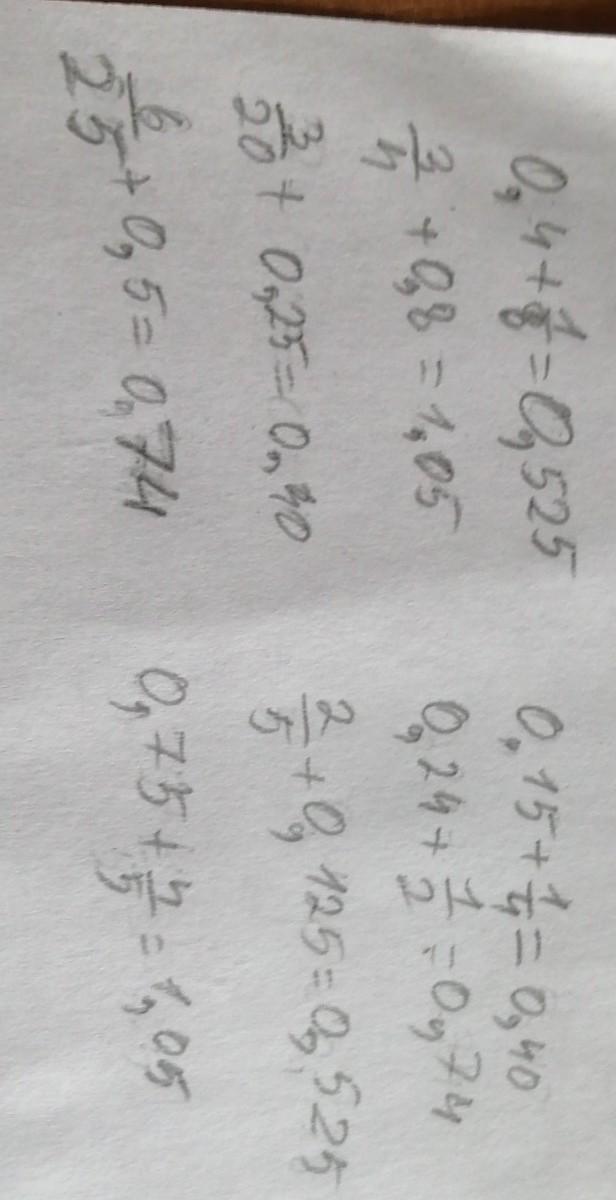 0,4+1/8=0,525
3/4+0,8=1,05
3/20+0,25=0,40
6/25+0,5=0,74
0,15+1/4=0,40
0,24+1/2=0,74
2/5+0,125=0,525
0,75+4/5=1,05